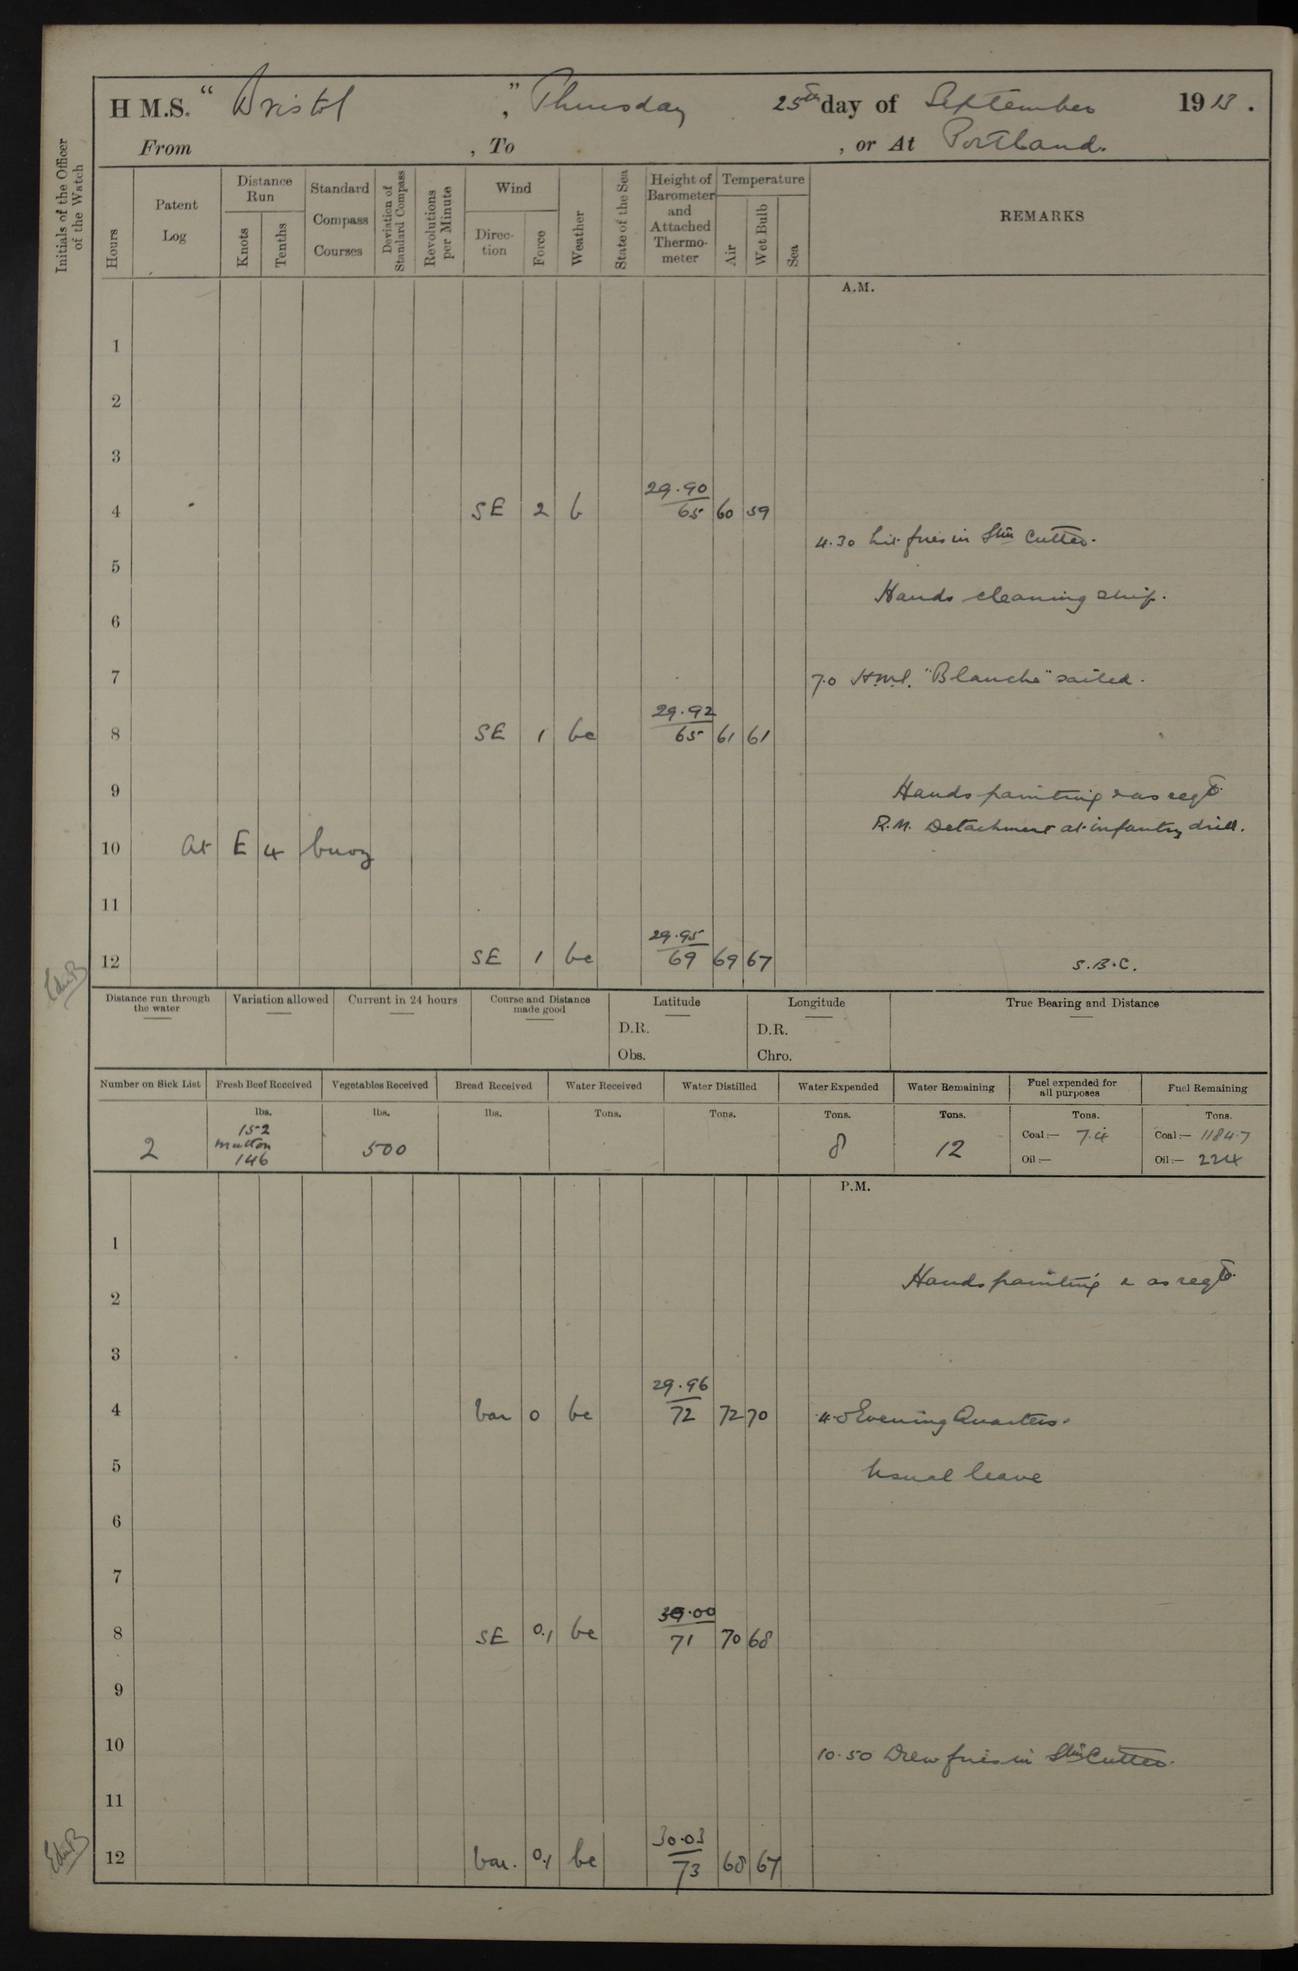 H M.S. "Bristol", Thursday 25th day of September 1913.
From , To , or At Portland.
Initials of the Officer of the Watch
Hours
Patent Log
Distance Run
Knots
Tenths
Standard Compass Courses
Deviation of Standard Compass
Revolutions per Minute
Wind
Direc-tion
Force
Weather
State of the Sea
Height of Barometer and Attached Thermo-meter
Temperature
Air
Wet Bulb
Sea
REMARKS
A.M.
1
2
3
4 SE 2 b 29.90 65 60 59
4.30 Lit fires in Stm Cutter.
5
Hands cleaning ship.
6
7 7.0 H.M.S. "Blanche" sailed.
8 SE 1 bc 29.92 65 61 61
9 Hands painting & as reqd.
R.M. Detachment at infantry drill.
10 At E 4 buoy
11
12 SE 1 bc 29.95 69 69 67
S.B.C.
Distance run through the water
Variation allowed
Current in 24 hours
Course and Distance made good
Latitude
D.R.
Obs.
Longitude
D.R.
Chro.
True Bearing and Distance
Number on Sick List Fresh Beef Received Vegetables Received Bread Received Water Received Water Distilled Water Expended Water Remaining Fuel expended for all purposes Fuel Remaining
lbs. lbs. lbs. Tons. Tons. Tons. Tons. Tons. Tons.
2 152 mutton 146 500 8 12 Coal:— 7.4 Coal:— 1184.7
Oil:— Oil:— 224
P.M.
1
2 Hands painting & as reqd.
3
4 var 0 bc 29.96 72 72 70 4.0 Evening Quarters.
5 Usual leave
6
7
8 SE 0.1 bc 30.00 71 70 68
9
10 10.50 Drew fires in Stm Cutter.
11
12 var. 0.1 bc 30.03 73 68 67